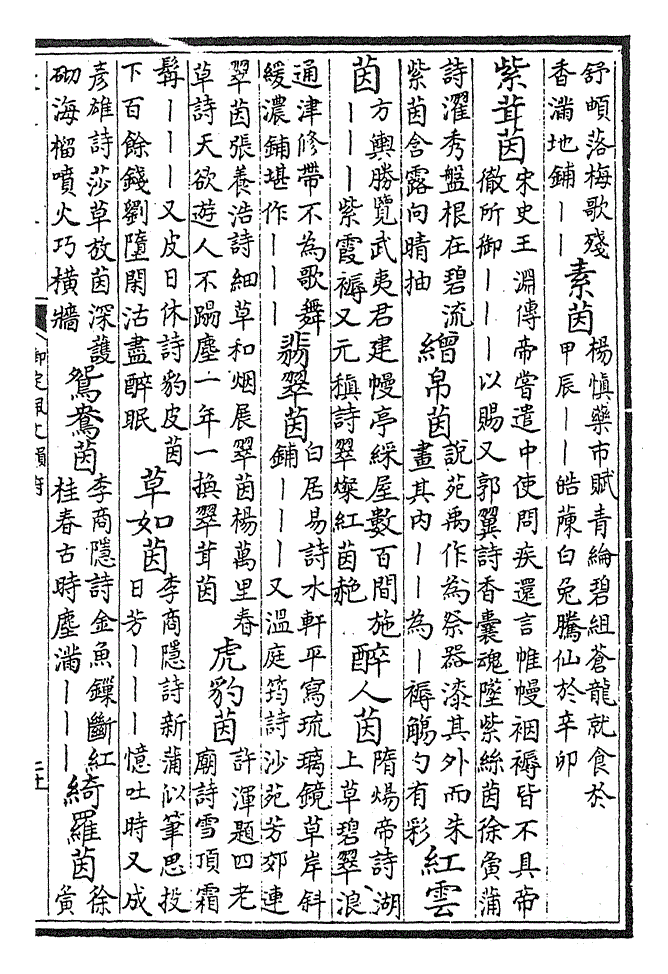 舒頔落梅歌殘
香滿地鋪｜｜
素茵
楊慎藥市賦青綸碧組蒼龍就食於
甲辰｜｜皓蔯白兔騰仙於辛卯
紫茸茵
宋史王淵傳帝嘗遣中使問疾還言惟幔裀褥皆不具帝
徹所御｜｜｜以賜又郭翼詩香囊魂墜紫絲茵徐夤蒲
詩濯秀盤根在碧流
紫茵含露向晴抽
繒帛茵
說苑禹作為祭器漆其外而朱
畫其內｜｜為｜褥觴勺有彩
紅雲
茵
方輿勝覽武夷君建幔亭綵屋數百間施
｜｜｜紫霞褥又元稹詩翠燦紅茵赩
醉人茵
隋煬帝詩湖
上草碧翠浪
通津修帶不為歌舞
緩濃鋪堪作｜｜｜
翡翠茵
白居易詩水軒平寫琉璃鏡草岸斜
鋪｜｜｜又溫庭筠詩沙苑芳郊連
翠茵張養浩詩細草和烟展翠茵楊萬里春
草詩天欲遊人不蹋塵一年一換翠茸茵
虎豹茵
許渾題四老
廟詩雪頂霜
髯｜｜｜又皮日休詩豹皮茵
下百餘錢劉墮閑沽盡醉眠
草如茵
李商隱詩新蒲似筆思投
日芳｜｜｜憶吐時又成
彥雄詩莎草放茵深護
砌海榴噴火巧橫牆
鴛鴦茵
李商隱詩金魚鏁斷紅
桂春古時塵滿｜｜｜
綺羅茵
徐
夤
御定佩文韻府